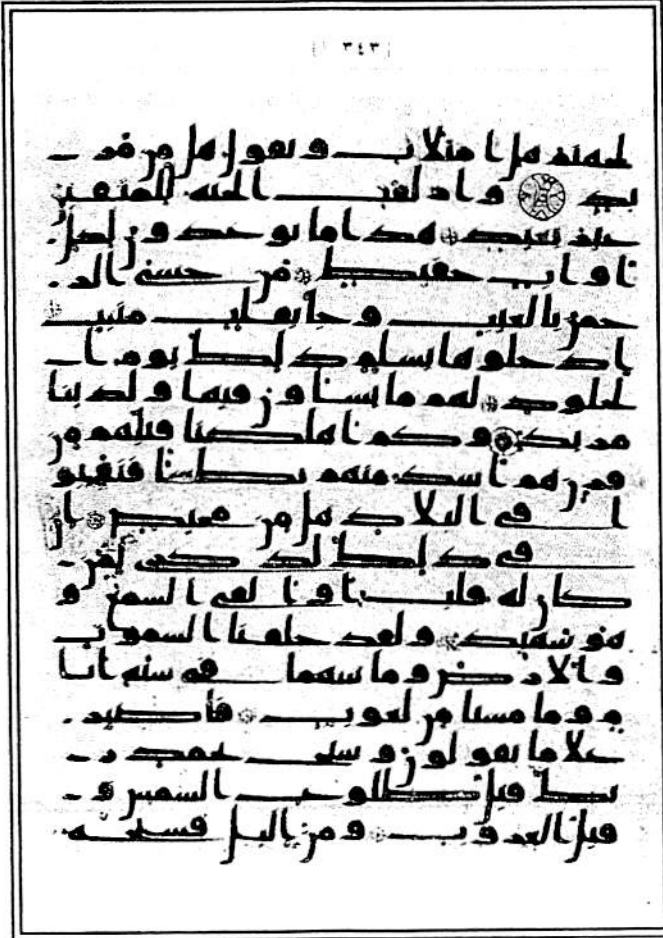 (٣٤٣)
لجهنم هل امتلات وتقول هل من مز
يد وازلفت الجنة للمتقين
غير بعيد هذا ما توعدون لكل
اواب حفيظ من خشي الر
حمن بالغيب وجا بقلب منيب
ادخلوها بسلم ذلك يوم ا
لخلود لهم ما يشاون فيها ولدينا
مزيد وكم اهلكنا قبلهم من
قرن هم اشد منهم بطشا فنقبو
ا في البلاد هل من محيص ان
في ذلك لذكرى لمن
كان له قلب او القى السمع و
هو شهيد ولقد خلقنا السموت
والارض وما بينهما في ستة ايا
م وما مسنا من لغوب فاصبر
على ما يقولون وسبح بحمد ر
بك قبل طلوع الشمس و
قبل الغروب ومن اليل فسبحه